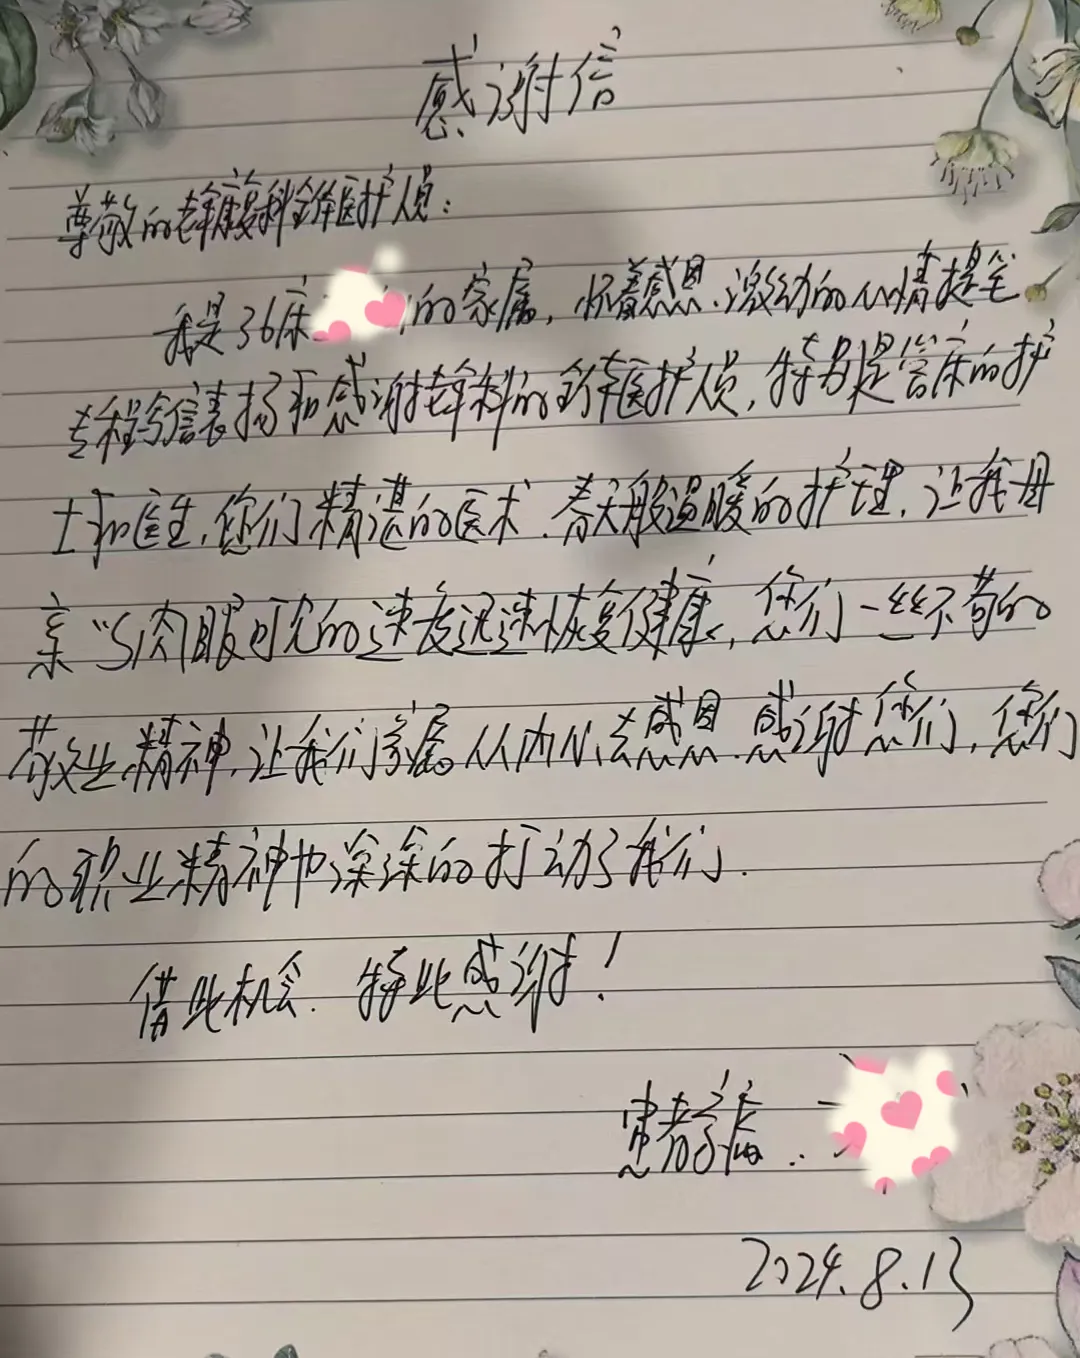 感谢信
尊敬的老年康复科全体医护人员：
我是36床的家属，怀着感恩、激动的心情提笔
专程写信表扬和感谢老年科的全体医护人员，特别是管床的护
士和医生，您们精湛的医术、春天般温暖的护理，让我母
亲以肉眼可见的速度迅速恢复健康，您们一丝不苟的
敬业精神，让我们家属从内心去感恩、感谢您们，您们
的职业精神也深深的打动了我们.
借此机会，特此感谢！
患者家属：
2024.8.13